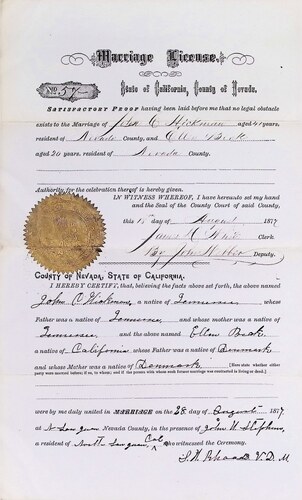 Marriage License.
No. 57
State of California, County of Nevada.
SATISFACTORY PROOF having been laid before me that no legal obstacle
exists to the Marriage of John C Hickman aged 41 years
resident of Nevada County, and Ellen Beck
aged 20 years, resident of Nevada
County.
Authority for the celebration thereof is hereby given.
IN WITNESS WHEREOF, I have hereunto set my hand
and the Seal of the County Court of said County,
this 15 day of August 1877
James Clerk.
By John Deputy.
COUNTY OF NEVADA, STATE OF CALIFORNIA.
I HEREBY CERTIFY, that, believing the facts above set forth, the above named
John C Hickman, a native of Tennessee whose
Father was a native of Tennessee and whose Mother was a native of
Tennessee and the above named Ellen Beck
a native of California whose Father was a native of Denmark
and whose Mother was a native of Denmark [Here state whether either
party were married before; if so, to whom; and if the person with whom such former marriage was contracted is living or dead.]
were by me duly united in MARRIAGE on the 28 day of August 1877
at N San Juan Nevada County, in the presence of John H Stephens
a resident of North San Juan Cal who witnessed the Ceremony.
V. D. M